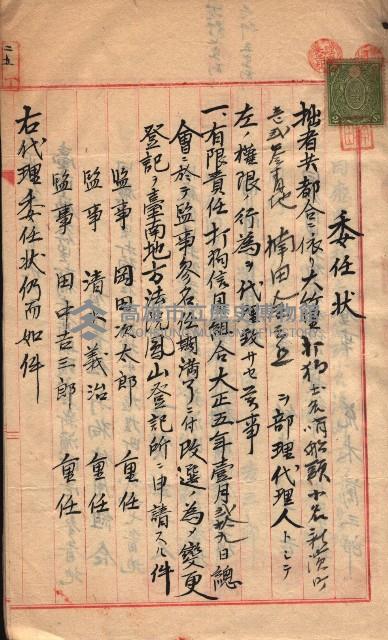 委任状
拙者共都合ニ依リ大竹里打狗土名哨船頭小名新濱町
楠田
ヲ部理代理人トシテ
左ノ權限ノ行為ヲ代理致サセ候事
一有限責任打狗信用組合大正五年壹月貳拾九日總
會ニ於テ監事参名任期満了ニ付改選ノ為メ變更
登記ヲ臺南地方法院鳳山登記所ニ申請スル件
監事 岡田次太郎 重任
監事 清水義治 重任
監事 田中吉三郎 重任
右代理委任状仍而如件
高雄市立歷史博物館
二五